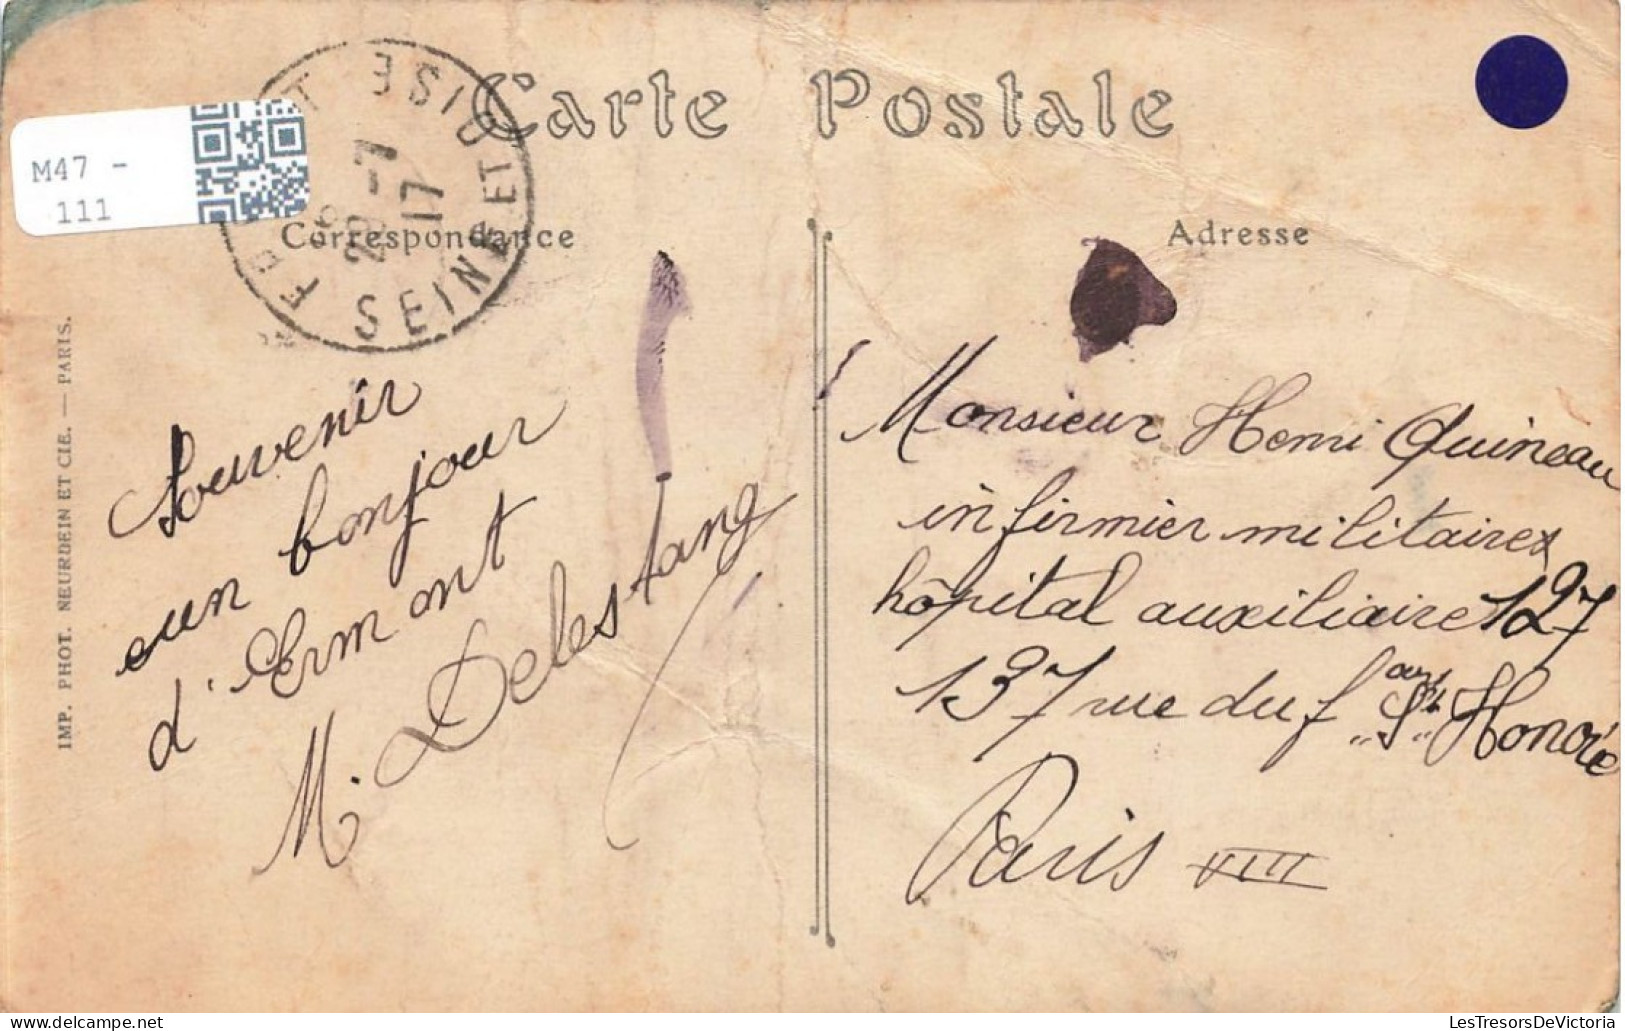 Carte Postale
M47 -
111
20 -7
17
SEINE ET OISE
Correspondance
Adresse
IMP. PHOT. NEURDEIN ET CIE. — PARIS.
Souvenir
eun bonjour
d'Ermont
M. Delestang
Monsieur Henri Quineau
infirmier militaire
hôpital auxiliaire 127
137 rue du f St Honoré
Paris VIII
delcampe.net LesTresorsDeVictoria